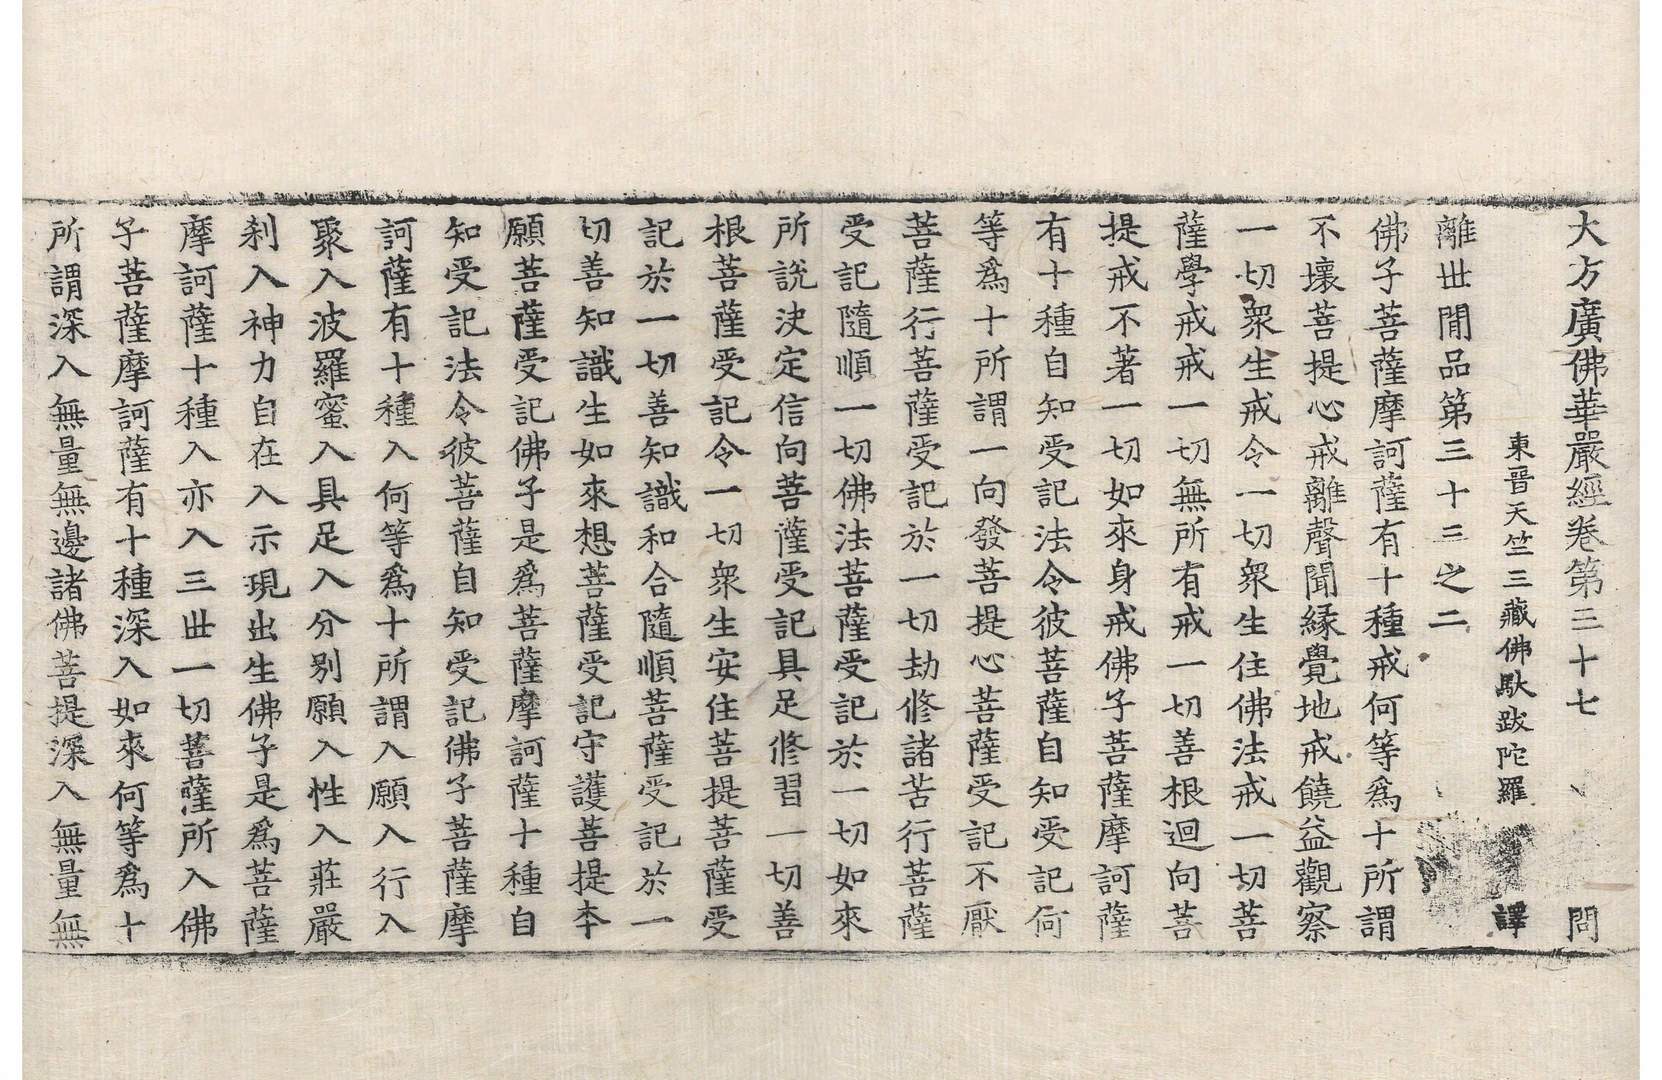 大方廣佛華嚴經卷第三十七 問
東晋天竺三藏佛馱跋陀羅 譯
離世間品第三十三之二
佛子菩薩摩訶薩有十種戒何等爲十所謂
不壞菩提心戒離聲聞緣覺地戒饒益觀察
一切衆生戒令一切衆生住佛法戒一切菩
薩學戒戒一切無所有戒一切善根迴向菩
提戒不著一切如來身戒佛子菩薩摩訶薩
有十種自知受記法令彼菩薩自知受記何
等爲十所謂一向發菩提心菩薩受記不厭
菩薩行菩薩受記於一切劫修諸苦行菩薩
受記隨順一切佛法菩薩受記於一切如來
所說決定信向菩薩受記具足修習一切善
根菩薩受記令一切衆生安住菩提菩薩受
記於一切善知識和合隨順菩薩受記於一
切善知識生如來想菩薩受記守護菩提本
願菩薩受記佛子是爲菩薩摩訶薩十種自
知受記法令彼菩薩自知受記佛子菩薩摩
訶薩有十種入何等爲十所謂入願入行入
聚入波羅蜜入具足入分别願入性入莊嚴
刹入神力自在入示現出生佛子是爲菩薩
摩訶薩十種入亦入三世一切菩薩所入佛
子菩薩摩訶薩有十種深入如來何等爲十
所謂深入無量無邊諸佛菩提深入無量無